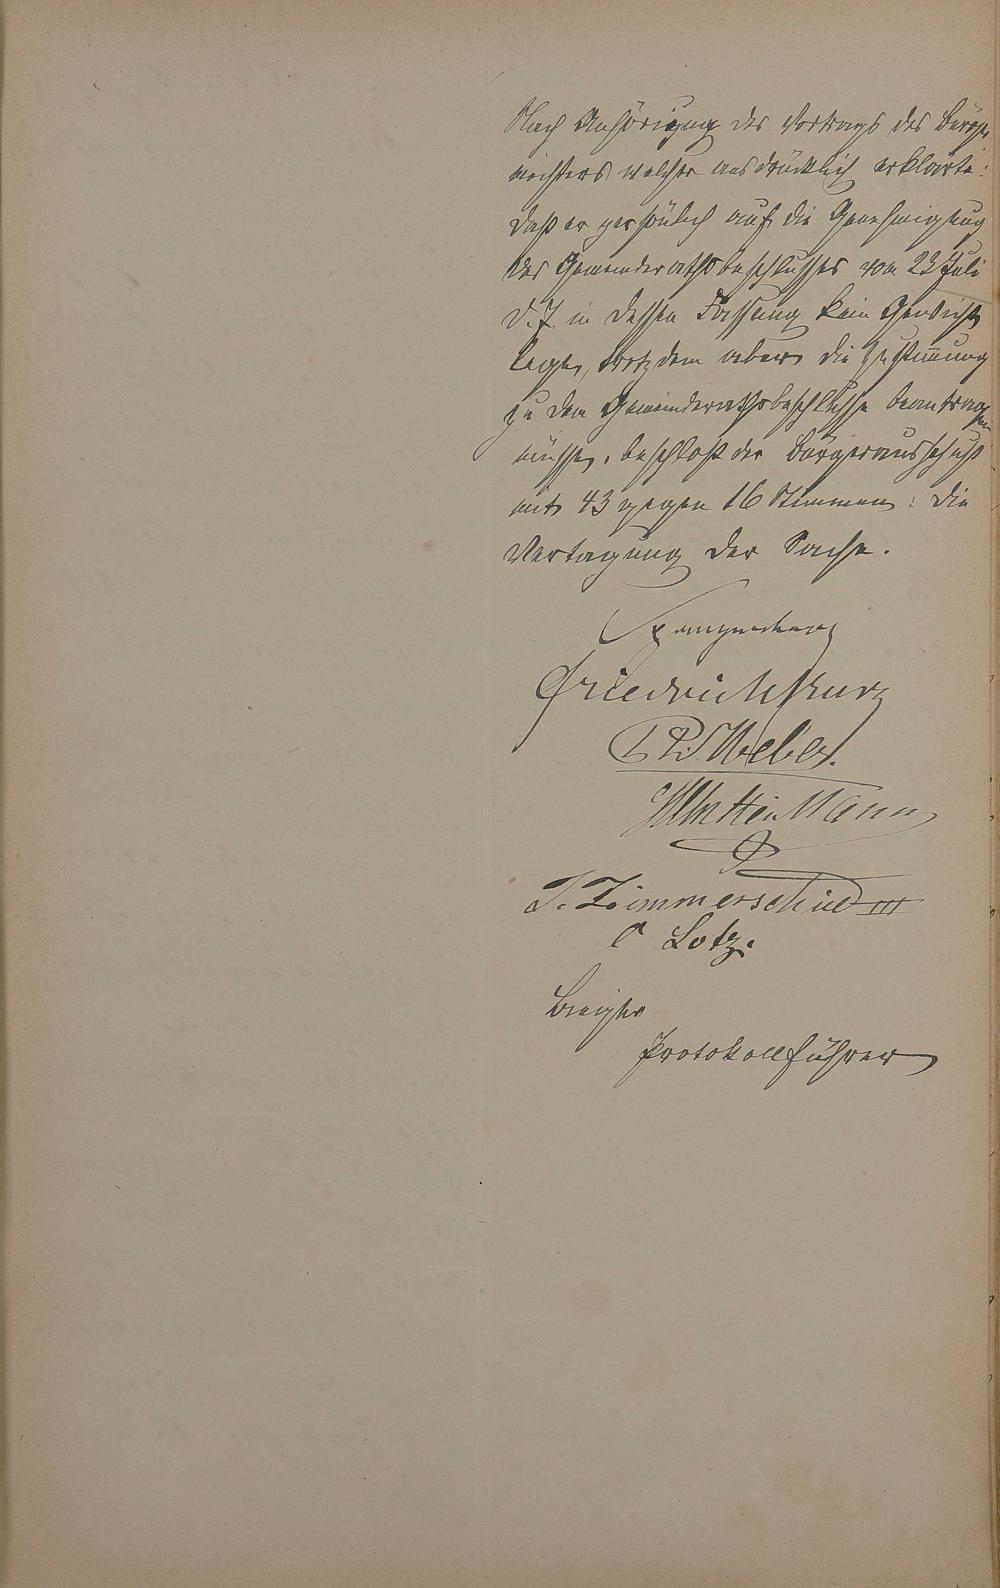 Nach Anhörigung des Vortrags des Bürger
meisters welcher ausdrücklich erklärte:
daß er persönlich auf die Genehmigung
des Gemeinderathsbeschlusses vom 22 Juli
d. J. in dessen Fassung kein Gewicht
lege, trotzdem aber die Zustimung
zu dem Gemeinderathsbeschlusse beantragen
müsse, beschloß der Bürgerausschuß
mit 43 gegen 16 Stimmen: die
Vertagung der Sache.
Friedrich Kurz
Ph. Weber.
J. Zimmerschied III
C Lotz.
Protokollführer